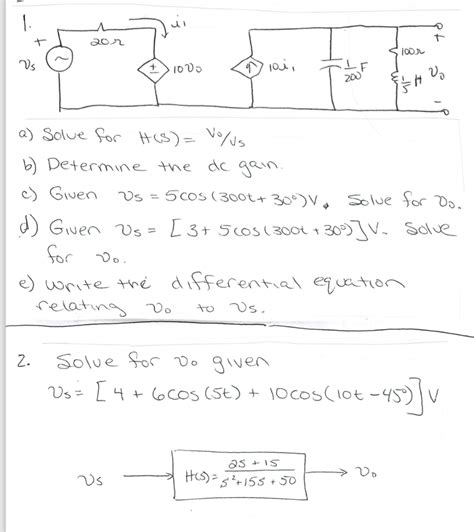 1.
i₁
+
20Ω
+
100Ω
Vs
±
10Vo
10i₁
1/200 F
1/5 H
Vo
-
a) Solve for H(s) = Vo/Vs
b) Determine the dc gain.
c) Given Vs = 5cos(300t+30°)V. Solve for Vo.
d) Given Vs = [3+5cos(300t+30°)]V. Solve
for Vo.
e) Write the differential equation
relating Vo to Vs.
2. Solve for Vo given
Vs = [4 + 6cos(5t) + 10cos(10t-45°)]V
Vs
H(s) = 2s+15 / s²+15s+50
Vo